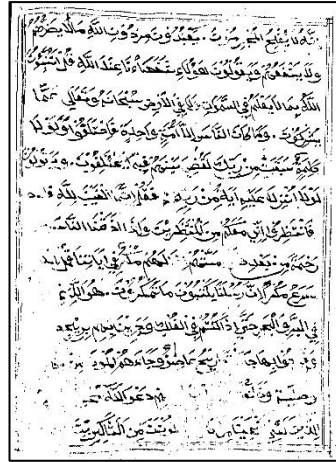 إنه لا يفلح المجرمون ويعبدون من دون الله ما لا يضرهم
ولا ينفعهم ويقولون هؤلاء شفعاؤنا عند الله قل أتنبئون
الله بما لا يعلم في السموات ولا في الأرض سبحانه وتعالى عما
يشركون وما كان الناس إلا أمة واحدة فاختلفوا ولولا
كلمة سبقت من ربك لقضي بينهم فيه يختلفون ويقولون
لولا أنزل عليه آية من ربه فقل إنما الغيب لله
فانتظروا إني معكم من المنتظرين وإذا أذقنا الناس
رحمة من بعد مستهم لهم مكر في آياتنا قل الله
أسرع مكرا إن رسلنا يكتبون ما تمكرون هو الذي
في البر والبحر حتى إذا كنتم في الفلك وجرين بهم بريح
بها ريح عاصف وجاءهم الموج
دعوا الله
الدين من الشاكرين